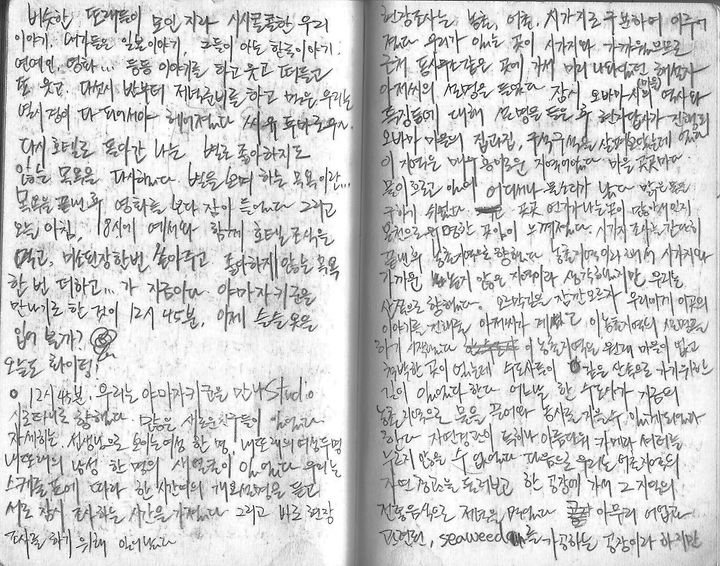 비슷한, 또래들이 모인 지라 시시콜콜한 우리
이야기, 네기들은 일본이야기, 그들이 아는 한국이야기.
연예인, 영화... 등등 이야기를 하고 웃고 떠들고
또 웃고. 다섯시 반부터 저녁준비를 하고 먹은 우리는
열시경이 다 되어서야 헤어졌다. 씨유 투마로우~.
다시 호텔로 돌아간 나는 별로 좋아하지도
않는 목욕을 다시했다. 별을 보며 하는 목욕이란...
목욕을 끝낸 후 영화를 보다 잠이 들었다. 그리고
오늘 아침, 함께 호텔조식을
먹고, 한번 놓아주고 좋아하지 않는 목욕
한 번 더하고... 가 지금이다. 야마자키군을
만나기로 한 것이 12시 45분, 이제 슬슬 옷을
입어 볼까?
오늘도 화이팅!
12시 45분, 우리는 야마자키군을 만나 Studio
시로타니로 향했다. 많은 새로운친구들이 있었다.
자세히는, 선생님으로 보이는여성 한 명, 내또래의 여성두명
내또래의 남성 한 명의 새얼굴이 있었다. 우리는
스케줄표에 따라 한시간여의 개회설명을 듣고
서로 잠시 조사하는 시간을 가졌다. 그리고 바로 현장
조사를 하기 위해 일어났다.
현장조사는 농촌, 어촌, 시가지로 구분하여 이루어
졌다. 우리가 있는 곳이 시가지와 가까웠으므로
근처 동사무소같은 곳에 가서 미리 나와있던 해설사
아저씨의 설명을 들었다. 잠시 오바마시의 역사와
특징등에 대해 설명을 들은 후 현장답사가 진행되
오바마 마을의 집과집, 구석구석을 살펴보았는데
이 지역은 매우 흥미로운 지역이었다. 마을 곳곳마다
물이흐르고 있어 어디서나 물소리가 났다. 맑은 물을
구하기 쉬웠다. 곳곳 연기가나는곳이 많아서인지
온천으로 유명한 곳임이 느껴졌다. 시가지 조사를 간단히
끝내고 농촌지역으로 향했다. 농촌지역이라 해서 시가지와
가까운 높지 않은 지역이라 생각했지만 우리는
산길으로 향했다. 오르막길을 잠깐오르자 우리에게 이곳의
이야기를 전해줄 아저씨가 계셨고 이 농촌지역의 설명을
하기 시작했다. 이 농촌지역은 원래 마을이 없고
척박한 곳이 었는데 수도사들이 깊은 산속으로 가기위하는
길이 있었다 한다. 어느날 한 수도사가 지금의
농촌지역으로 물을 끌어와 농사를 지을 수 있게되었다
한다. 자연경관이 특히나 아름다워 카메라 셔터를
누르지 않을 수 없었다. 다음으로 우리는 어촌지역의
자연 경관을 둘러보고 한 공장에 가서 그 지역의
전통음식으로 제조를 하였다. 아무래 어업과
관련된, seaweed를 가공하는 공장이라 하지만